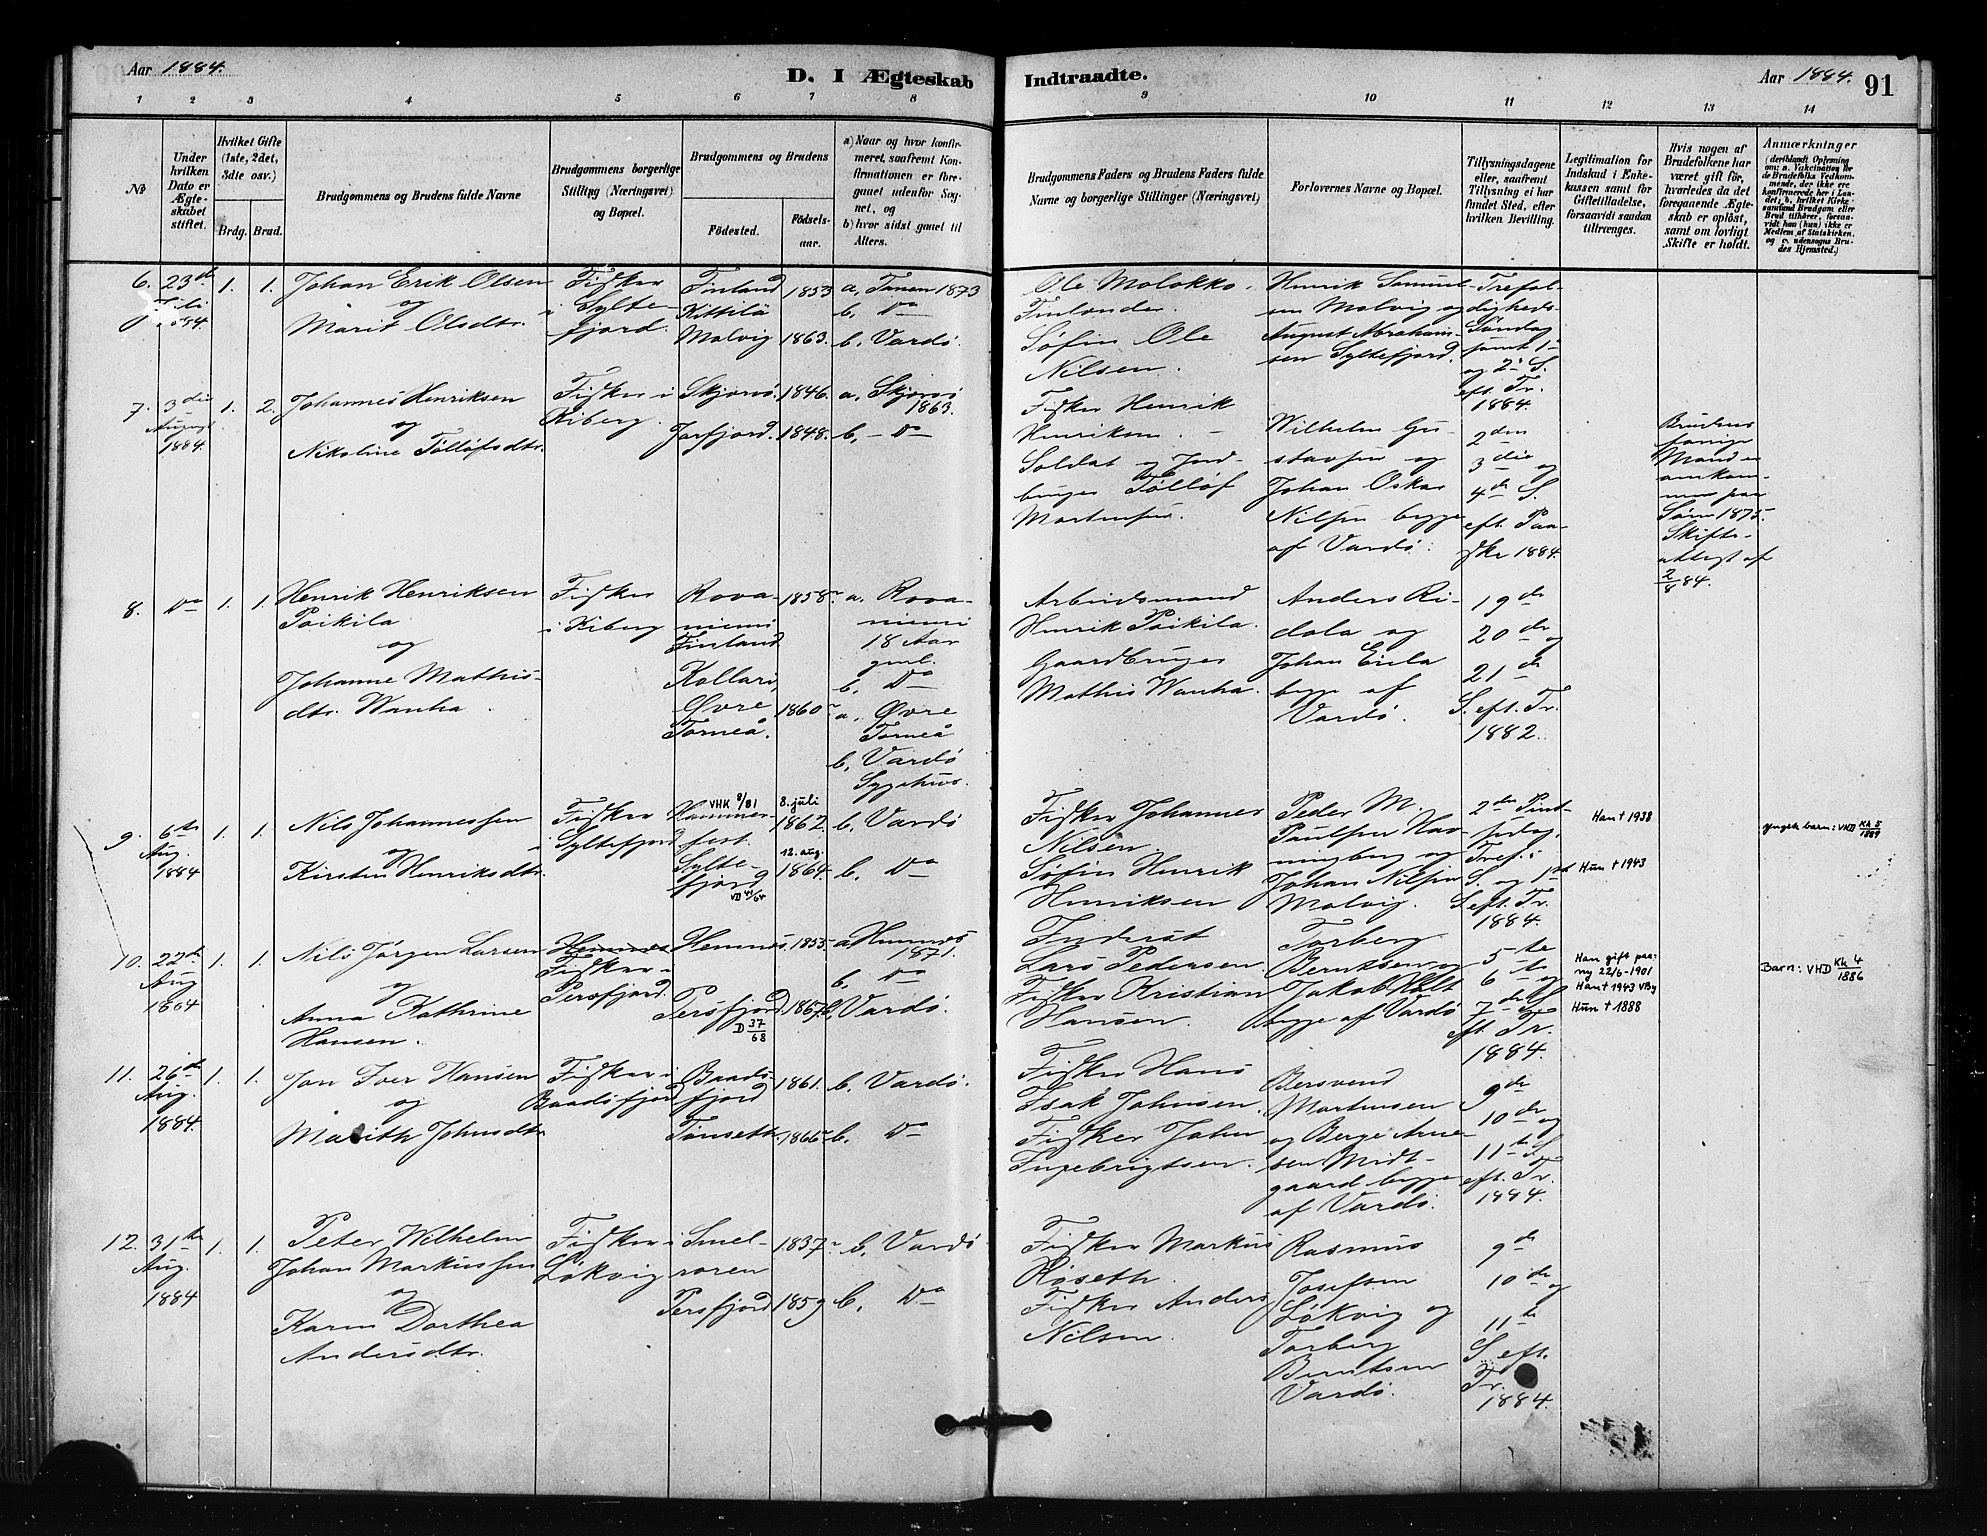 Aar 1884.
D. I Ægteskab
Indtraadte.
Aar 1884.
91
1 2 3 4 5 6 7 8
9 10 11 12 13 14
No
Under hvilken Dato er Ægte-skabet stiftet.
Hvilket Gifte (1ste, 2det, 3die osv.)
Brdg. Brud.
Brudgommens og Brudens fulde Navne
Brudgommens borgerlige Stilling (Næringsvei) og Bopæl.
Brudgommens og Brudens
Födested.
Födsels-aar.
a) Naar og hvor konfir-meret, saafremt Kon-firmationen er fore-gaaet udenfor Sog-net, og
b) hvor sidst gaaet til Alters.
Brudgommens Faders og Brudens Faders fulde Navne og borgerlige Stillinger (Næringsvei)
Forlovernes Navne og Bopæl.
Tillysningsdagene eller, saafremt Tillysning ei har fundet Sted, efter hvilken Bevilling.
Legitimation for Indskud i Enke-kassen samt for Giftetilladelse, forsaavidt saadan tiltrænges.
Hvis nogen af Brudefolkene har været gift før, hvorledes da det foregaaende Ægte-skab er opløst, samt om lovligt Skifte er holdt.
Anmærkninger
6. 23de Juli 1884. 1. 1.
Johan Erik Olsen
og
Marit Olsdtr.
Fisker
i Sylte-
fjord.
Finland
Kittilä
Molvig
1853
1863.
a, Tanen 1873
b. Do
b. Vardö.
Ole Molokko.
Finlender.
Søfin Ole
Nilsen.
Henrik Samuel-
sen Molvig og
August Abraham-
sen Syltefjord.
Trefol-
digheds-
Søndag
samt 1-
og 2. S.
eft. Tr.
1884.
7. 3die August 1884. 1. 2.
Johannes Henriksen
og
Nikoline Tølløfsdtr.
Fisker i
Kiberg.
Skjervö.
Jarfjord.
1846.
1848.
a. Skjervö
1863.
b. - Do
Fisker Henrik
Henriksen. -
Soldat og Jord-
bruger Tølløf
Mortensen.
Wilhelm Gu-
stavsen og
Johan Oskar
Nilsen begge
af Vardö.
2den
3die og
4de S.
eft. Paa-
ske 1884.
Brudens
forrige
Mand er
omkom-
men paa
Søen 1875.
Skifte-
attest af
2/8 84.
8. Do 1. 1.
Henrik Henriksen
Poikila
og
Johanne Mathis-
dtr. Wanha.
Fisker
i Kiberg
Rova-
niemi
Finland
Kollari,
Øvre
Torneå.
1858
1860
a. Rova-
niemi
18 Aar
gml.
b. Do
a. Øvre
Torneå
b. Vardö
Sygehus.
Arbeidsmand
Henrik Poikila.
Gaardbruger
Mathis Wanha.
Anders Ri-
dala og
Johan Eiela
begge af
Vardö.
19de
20de og
21de
S. eft. Tr.
1882.
9. 6te Aug. 1884 1. 1.
Nils Johannessen
og
Kirsten Henriksdtr.
Fisker
i Syltefjord
VHK 8/81
Hammer-
fest.
Sylte-
fjord
VD 41/64
8. juli
1862.
12. aug.
1864.
b. Vardö
b. Do
Fisker Johannes
Nilsen.
Søfin Henrik
Henriksen
Peder M.
Paulsen Hav-
ningberg og
Johan Nilsen
Molvig.
2den Pint-
sedag,
Tref.s
S. og 1ste
S. eft. Tr.
1884.
Han † 1938
Hun † 1943
Yngste barn: VHD Kk 5/1889
10. 22de Aug 1884 1. 1.
Nils Jørgen Larsen
og
Anna Kathrine
Hansen.
Hemnes
Fisker i
Persfjord.
Hemnes.
Persfjord.
D 37/68
1855.
1867.
a. Hemnes
1871.
b. Do
b. Vardö.
Inderst
Lars Pedersen
Fisker Kristian
Hansen.
Torberg
Berntsen og
Jakob Holt
begge af Vardö
5te
6te og
7de S.
eft. Tr.
1884.
Han gift paa-
ny 22/6-1901
Han † 1943 VBy
Hun † 1888
Barn: VHD Kk 4/1886
11. 26de Aug. 1884 1. 1.
Jon Iver Hansen
og
Marith Johnsdtr.
Fisker i
Baadsfjord
Baads-
fjord
Tønseth.
1861.
1866
b. Vardö.
b. Do
Fisker Hans
Isak Johnsen.
Fisker John
Ingebrigtsen.
Bersvend
Mortensen
og Berge Arne-
sen Midt-
gaard begge
af Vardö.
9de
10de og
11te S.
eft. Tr.
1884.
12. 31te Aug. 1884 1. 1.
Peter Wilhelm
Johan Markussen
og
Karen Dorthea
Andersdtr.
Fisker i
Løkvig
Smel-
roren
Persfjord
1837
1859
b. Vardö
b. Do
Fisker Markus
Røseth.
Fisker Anders
Nilsen.
Rasmus
Josefsen
Løkvig og
Torberg
Berntsen
Vardö.
9de
10de og
11te
S. eft.
Tr.
1884.